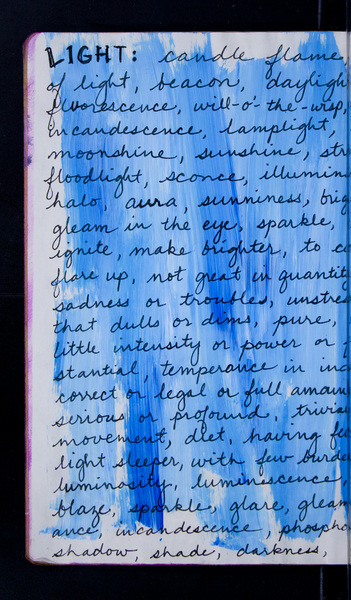 LIGHT: candle flame,
of light, beacon, dayligh
fluorescence, will-o'-the-wisp,
incandescence, lamplight,
moonshine, sunshine, str
floodlight, sconce, illumin
halo, aura, sunniness, brig
gleam in the eye, sparkle,
ignite, make brighter, to c
flare up, not great in quantity
sadness or troubles, unstres
that dulls or dims, pure,
little intensity or power or f
stantial, temperance in ind
correct or legal or full amoun
serious or profound, trivia
movement, diet, having fe
light sleeper, with few burde
luminosity, luminescence,
blaze, sparkle, glare, gleam
ance, incandescence, phospho
shadow, shade, darkness,